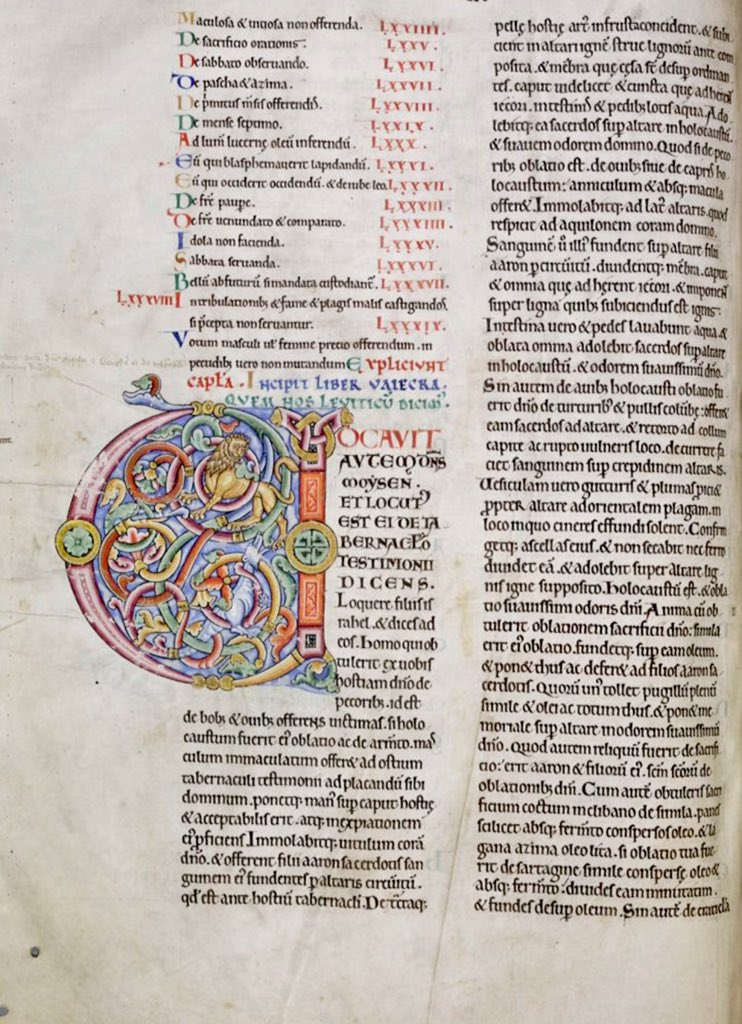 Maculosa & uiciosa non offerenda. LXXIIII.
De sacrificio orationis. LXXV.
De sabbato obseruando. LXXVI.
De pascha & azima. LXXVII.
De primitiis offerendis. LXXVIII.
De mense septimo. LXXIX.
Ad luminaria lucerne oleū inferendū. LXXX.
Eū qui blasphemauerit lapidandū. LXXXI.
Eū qui occiderit occidendū. & de iubeleo. LXXXII.
De frē paupe. LXXXIII.
De frē uenundato & comparato. LXXXIIII.
Idola non facienda. LXXXV.
Sabbata seruanda. LXXXVI.
Bellū abfuturū si mandata custodiant. LXXXVII.
LXXXVIII In tribulationib; & fame & plagis malis castigandos
si pcepta non seruantur. LXXXIX.
Votum masculi uł femine precio offerendum. in
pecudib; uero non mutandum EXPLICIUNT
CAPLA. INCIPIT LIBER VAIECRA.
QUEM NOS LEVITICŪ DICIM᾽.
VOCAVIT
AVTEM DÑS
MOYSEN.
ET LOCUT᾽
EST EI DE TA
BERNACLO
TESTIMONII
DICENS.
Loquere filiis is
rahel. & dices ad
eos. Homo qui ob
tulerit ex uobis
hostiam dnō de
pecorib;. id est
de bob; & ouib; offerens uictimas. si holo
caustum fuerit ei᾽ oblatio ac de armto. mas
culum immaculatum offer& ad ostium
tabernaculi testimonii ad placandū sibi
dominum. ponetq; man᾽ sup caput hostię
& acceptabilis erit. atq; in expiationem
ei᾽ pficiens. Immolabitq; uitulum corā
dnō. & offerent filii aaron sacerdotis san
guinem ei᾽ fundentes p altaris circuitū.
qd᾽ est ante hostiū tabernacli. Detractaq;
pelle hostię art᾽ in frusta concident. & subi
cient in altari ignē strue lignorū ante com
posita. & mēbra quę cęsa sē desup ordinan
tes. caput uidelicet & cuncta que adherent
iecori. intestinis & pedib; lotis aqua. Ado
lebitq; ea sacerdos sup altare in holocaustū.
& suauem odorem domino. Quod si de peco
rib; oblatio est. de ouib; siue de capris ho
locaustum: anniculum & absq; macula
offer&. Immolabitq; ad lat᾽ altaris. quod
respicit ad aquilonem coram domino.
Sanguinē ū illi᾽ fundent sup altare filii
aaron p circuitū. diuidentq; mēbra. caput
& omnia que adherent iecori. & imponent
super ligna quib; subiciendus est ignis:
Intestina uero & pedes lauabunt aqua &
oblata omnia adolebit sacerdos sup altare
in holocaustū. & odorem suauissimū dnō.
Sin autem de auib; holocausti oblatio fu
erit dnō de turturib; & pullis colūbę: offer&
eam sacerdos ad altare. & retorto ad collum
capite ac rupto uulneris loco. decurrere fa
ciet sanguinem sup crepidinem altaris.
Uesiculam uero gutturis & plumas piciet
ppter altare ad orientalem plagam. in
loco in quo cineres effundi solent. Confrin
getq; ascellas eius. & non secabit nec ferro
diuidet eā. & adolebit super altare lig
nis igne supposito. Holocaustū est. & obla
tio suauissimi odoris dnī. Anima cū ob
tulerit oblationem sacrificii dnō: simila
erit ei᾽ oblatio. fundetq; sup eam oleum.
& pon& thus ac defer& ad filios aaron sa
cerdotis. Quorū un᾽ tollet pugillū plenū
simile & olei ac totum thus. & pon& me
moriale sup altare in odorem suauissimū
dnō. Quod autem reliquū fuerit de sacrifi
cio: erit aaron & filiorū ei᾽. scm̄ scōrū de
oblationib; dnī. Cum autē obtuleris sacri
ficium coctum in clibano de simila. panes
scilicet absq; ferm̄to conspersos oleo. & la
gana azima oleo lita. si oblatio tua fue
rit de sartagine simile consperse oleo &
absq; ferm̄to: diuides eam minutatim.
& fundes desup oleum. Sin autē de craticla